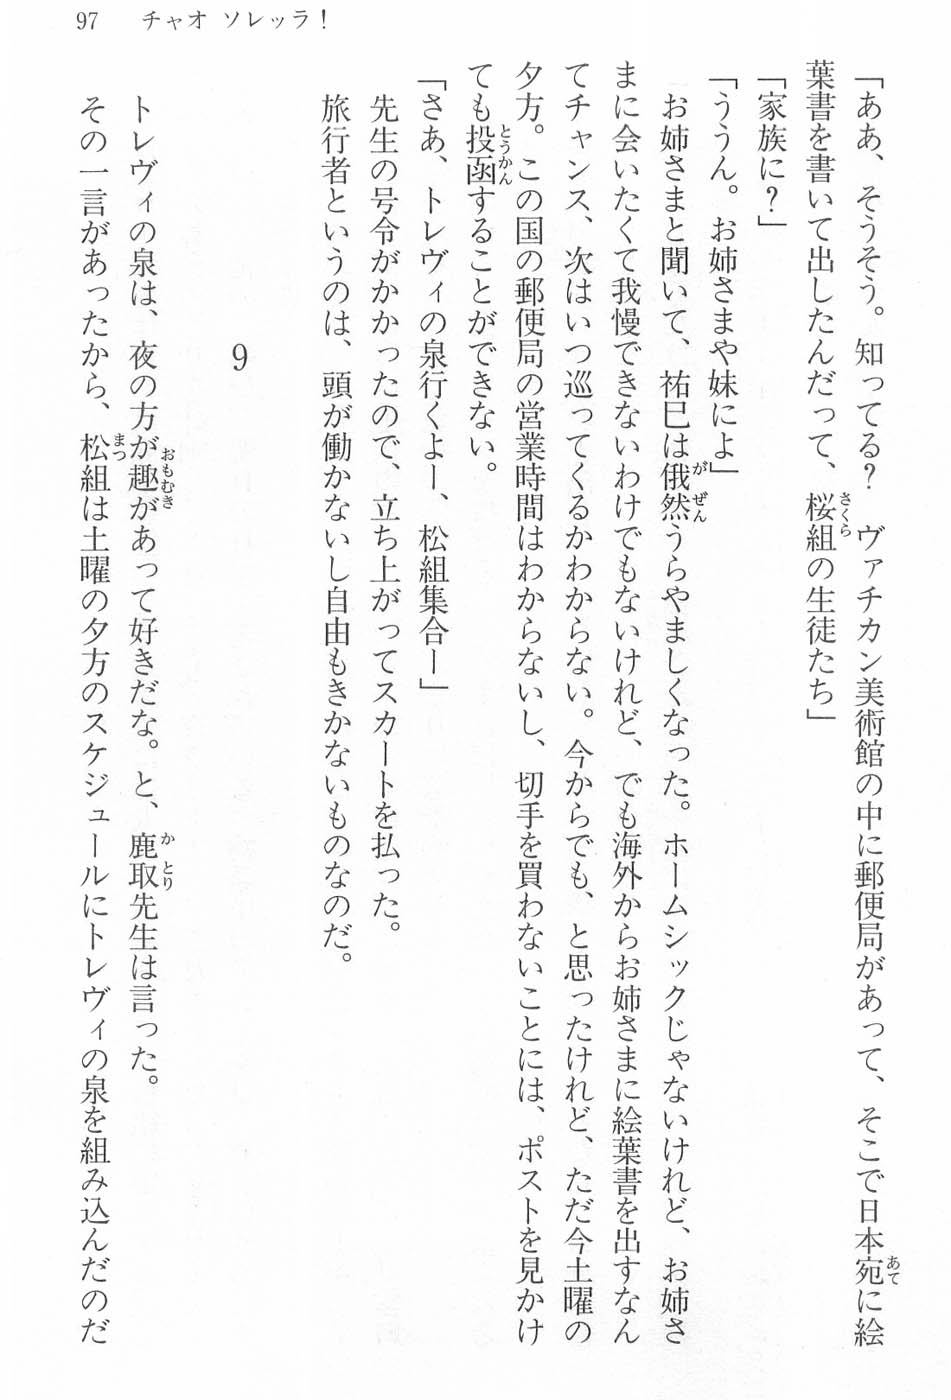 97　チャオ ソレッラ！
「ああ、そうそう。知ってる？　ヴァチカン美術館の中に郵便局があって、そこで日本宛に絵
葉書を書いて出したんだって、桜組の生徒たち」
「家族に？」
「ううん。お姉さまや妹によ」
　お姉さまと聞いて、祐巳は俄然うらやましくなった。ホームシックじゃないけれど、お姉さ
まに会いたくて我慢できないわけでもないけれど、でも海外からお姉さまに絵葉書を出すなん
てチャンス、次はいつ巡ってくるかわからない。今からでも、と思ったけれど、ただ今土曜の
夕方。この国の郵便局の営業時間はわからないし、切手を買わないことには、ポストを見かけ
ても投函することができない。
「さあ、トレヴィの泉行くよー、松組集合ー」
　先生の号令がかかったので、立ち上がってスカートを払った。
　旅行者というのは、頭が働かないし自由もきかないものなのだ。
9
　トレヴィの泉は、夜の方が趣があって好きだな。と、鹿取先生は言った。
　その一言があったから、松組は土曜の夕方のスケジュールにトレヴィの泉を組み込んだのだ